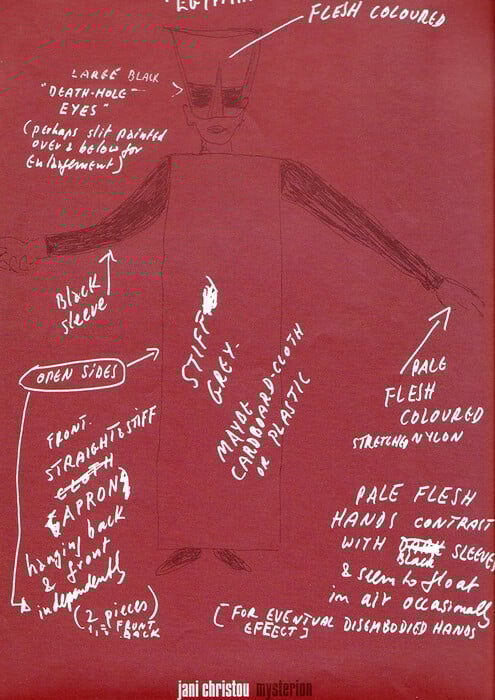 FLESH COLOURED
LARGE BLACK
"DEATH-HOLE
EYES"
(perhaps slit painted
over & below for
Enlargement)
Black
sleeve
OPEN SIDES
STIFF
GREY.
MAYBE
CARDBOARD-CLOTH
OR PLASTIC
PALE
FLESH
COLOURED
STRETCHED NYLON
FRONT.
STRAIGHT & STIFF
CLOTH
(APRON)
hanging back
& front
independently
(2 pieces)
1 = FRONT
BACK
PALE FLESH
HANDS CONTRAST
WITH Black SLEEVES
& seem to float
in air occasionally
[FOR EVENTUAL DISEMBODIED HANDS
EFFECT]
jani christou mysterion